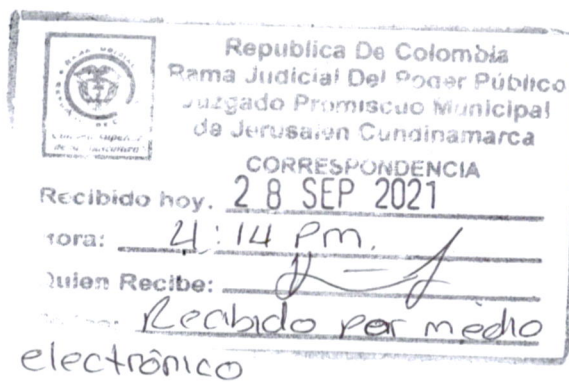 Republica De Colombia
Rama Judicial Del Poder Público
Juzgado Promiscuo Municipal
de Jerusalen Cundinamarca
CORRESPONDENCIA
Recibido hoy. 28 SEP 2021
Hora: 4:14 Pm.
Quien Recibe:
Recibido por medio
electrónico